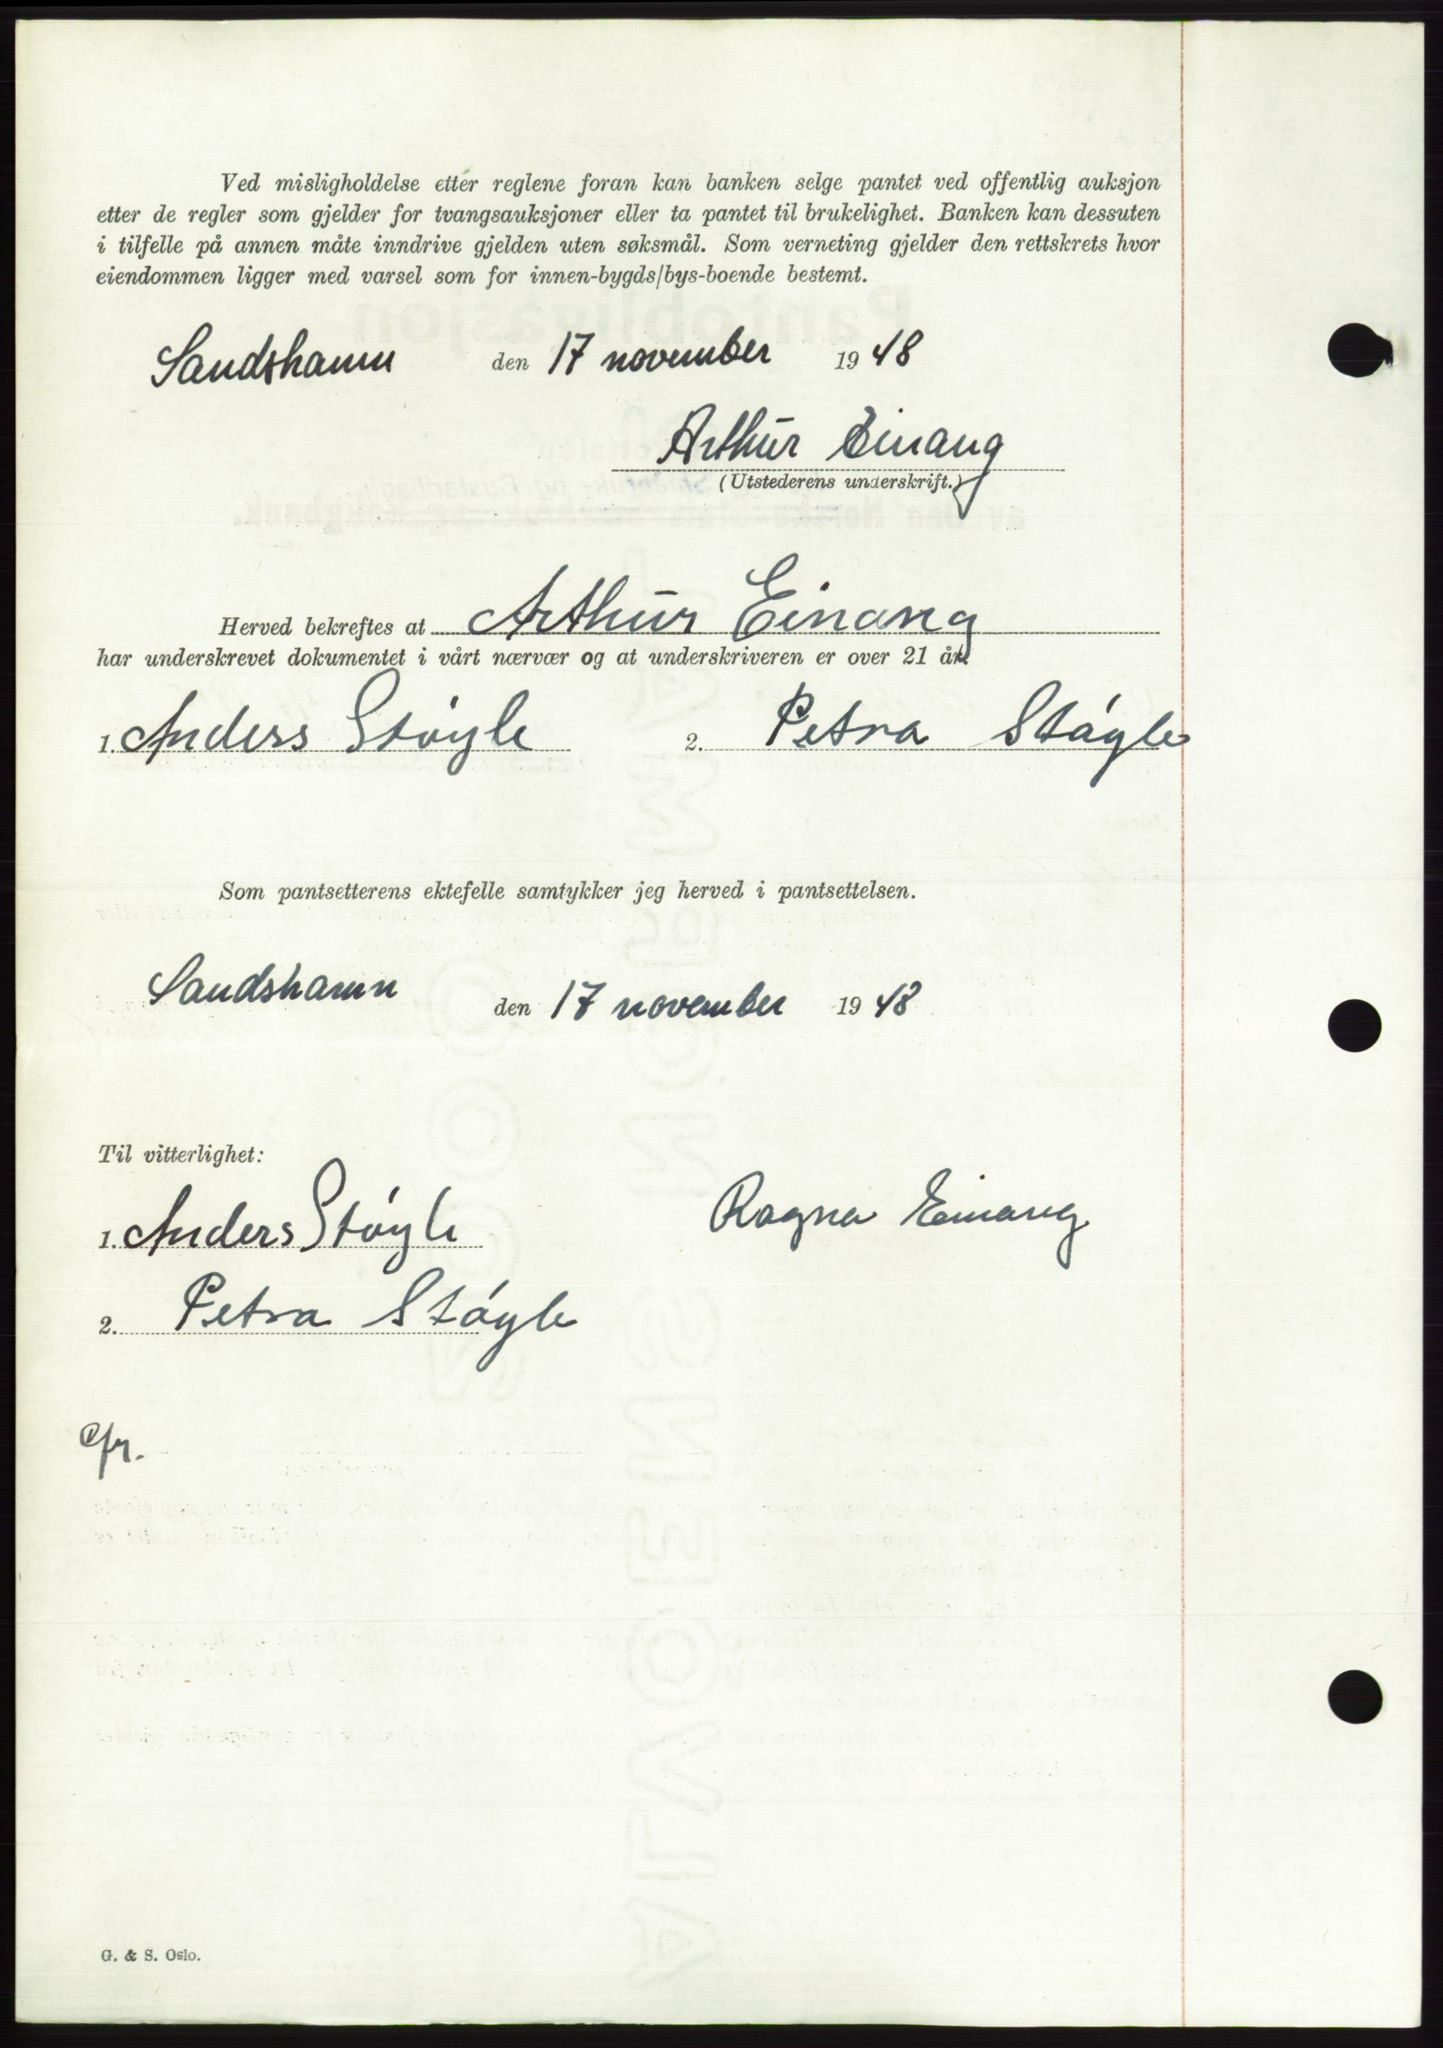 Ved misligholdelse etter reglene foran kan banken selge pantet ved offentlig auksjon
etter de regler som gjelder for tvangsauksjoner eller ta pantet til brukelighet. Banken kan dessuten
i tilfelle på annen måte inndrive gjelden uten søksmål. Som verneting gjelder den rettskrets hvor
eiendommen ligger med varsel som for innen-bygds/bys-boende bestemt.
Sandshamn den 17 november 1948
Arthur Einang
(Utstederens underskrift.)
Herved bekreftes at Arthur Einang
har underskrevet dokumentet i vårt nærvær og at underskriveren er over 21 år.
1. Anders Støyle 2. Petra Støyle
Som pantsetterens ektefelle samtykker jeg herved i pantsettelsen.
Sandshamn den 17 november 1948
Til vitterlighet:
1. Anders Støyle Ragna Einang
2. Petra Støyle
cfr.
G. & S. Oslo.